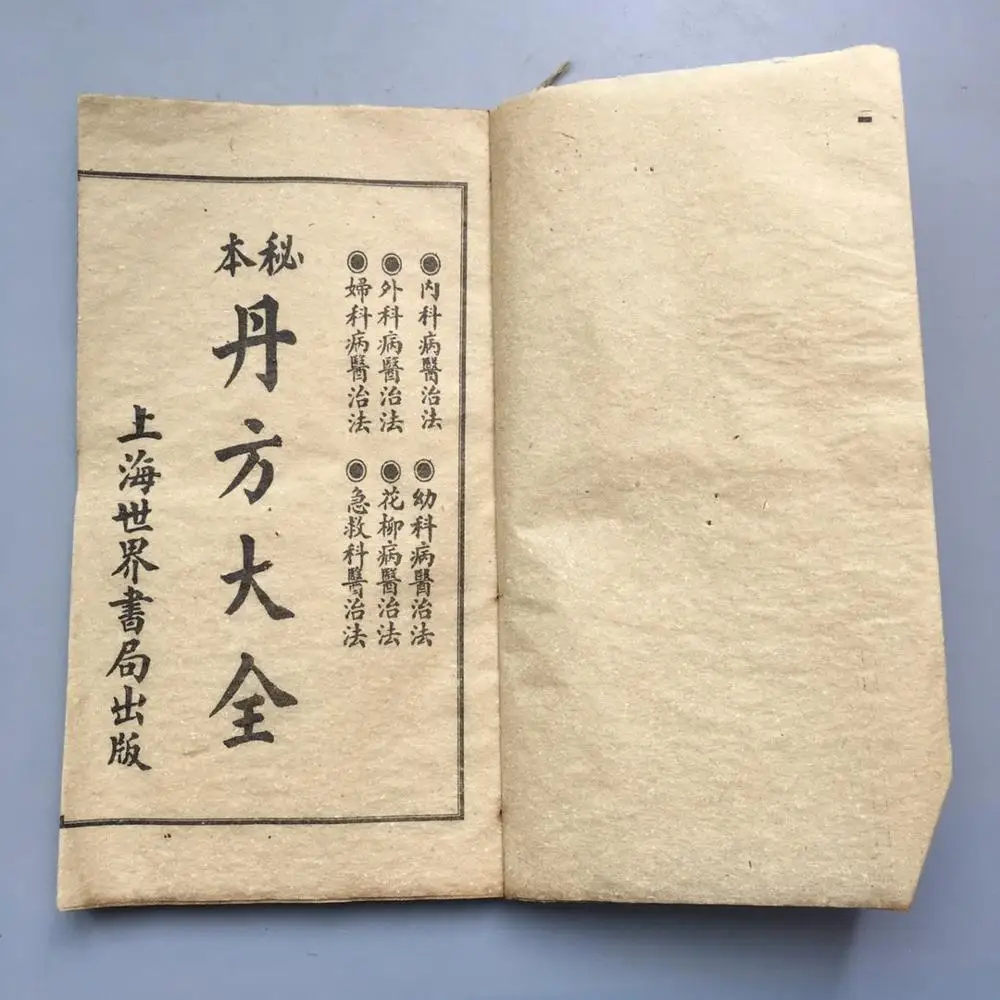 內科病醫治法
外科病醫治法
婦科病醫治法
幼科病醫治法
花柳病醫治法
急救科醫治法
秘本
丹方大全
上海世界書局出版